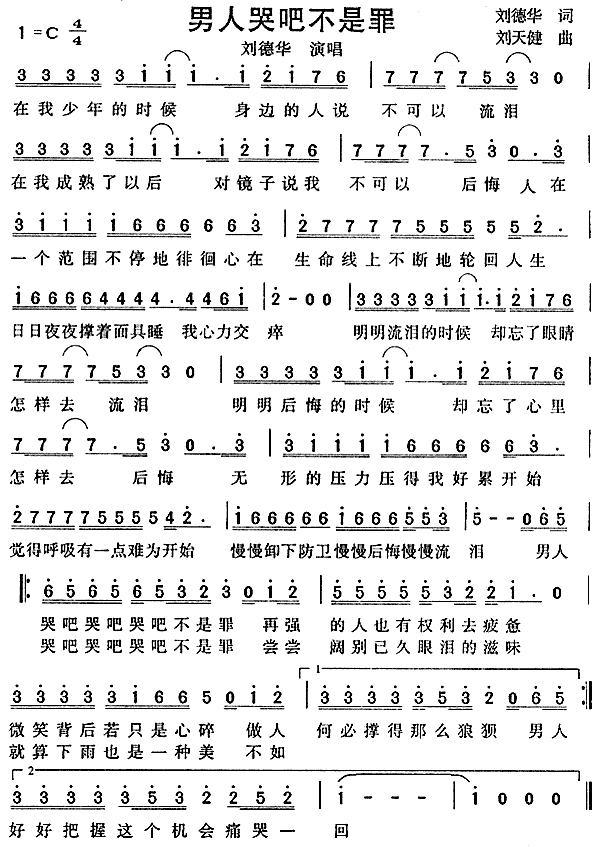 男人哭吧不是罪
1=C 4/4
刘德华 词
刘天健 曲
刘德华 演唱
3 3 3 3 3 i i i . i i 2 i 7 6 | 7 7 7 7 7 5 3 3 0 |
在我少年的时候 身边的人说 不可以 流泪
3 3 3 3 3 i i i . i i 2 i 7 6 | 7 7 7 7 . 5 3 0 . 3 |
在我成熟了以后 对镜子说我 不可以 后悔 人在
3 i i i i 6 6 6 6 6 3 | 2 7 7 7 7 5 5 5 5 5 2 . |
一个范围不停地徘徊心在 生命线上不断地轮回人生
i 6 6 6 6 6 4 4 4 4 . 4 4 6 i | 2 - 0 0 | 3 3 3 3 3 i i i . i i 2 i 7 6
日日夜夜撑着面具睡 我心力交 瘁 明明流泪的时候 却忘了眼睛
7 7 7 7 5 3 3 0 | 3 3 3 3 3 i i i . i 2 i 7 6
怎样去 流泪 明明后悔的时候 却忘了心里
7 7 7 7 . 5 3 0 . 3 | 3 i i i i 6 6 6 6 6 3 . |
怎样去 后悔 无 形的压力压得我好累开始
2 7 7 7 7 5 5 5 5 5 4 2 . | i 6 6 6 6 6 i 6 6 6 5 5 3 | 5 - - 0 6 5 |
觉得呼吸有一点难为开始 慢慢卸下防卫慢慢后悔慢慢流 泪 男人
6 5 6 5 6 5 3 2 3 0 i 2 | 5 5 5 5 5 3 2 2 i . 0 |
哭吧哭吧哭吧不是罪 再强 的人也有权利去疲惫
哭吧哭吧哭吧不是罪 尝尝 阔别已久眼泪的滋味
1
3 3 3 3 3 i 6 6 5 0 i 2 | 3 3 3 3 3 5 3 2 0 6 5 :
微笑背后若只是心碎 做人 何必撑得那么狼狈 男人
就算下雨也是一种美 不如
2
3 3 3 3 3 5 3 2 2 2 5 2 | i - - - | i 0 0 0
好好把握这个机会痛哭一 回